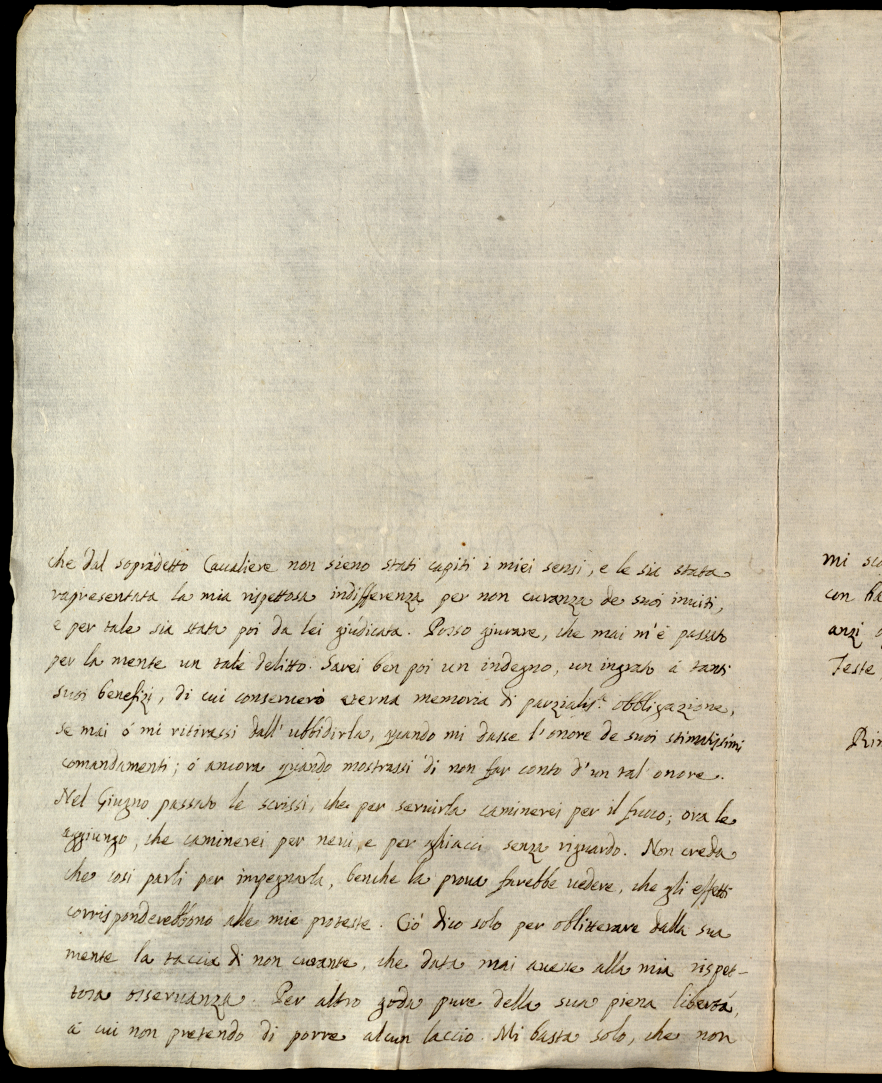 che dal sopradetto Cavaliere non sieno stati capiti i miei sensi, e le sia stata
rapresentata la mia rispettosa indifferenza per non curanza de suoi inviti,
e per tale sia stata poi da lei giudicata. Posso giurare, che mai m'è passato
per la mente un tale delitto. Sarei ben poi un indegno, un ingrato à tanti
suoi benefizi, di cui conserverò eterna memoria di parzialiss.ª obbligazione,
se mai ò mi ritirassi dall'ubbidirla, quando mi dasse l'onore de suoi stimatissimi
comandamenti; ò ancora quando mostrassi di non far conto d'un tal onore.
Nel Giugno passato le scrissi, che per servirla caminerei per il fuoco; ora le
aggiungo, che caminerei per nevi, e per ghiacci senza riguardo. Non creda
che così parli per impegnarla, benche la prova farebbe vedere, che gli effetti
corrisponderebbono alle mie proteste. Ciò dico solo per oblitterare dalla sua
mente la taccia di non curante, che data mai avesse alla mia rispet-
tosa osservanza. Per altro goda pure della sua piena libertà,
à cui non pretendo di porre alcun laccio. Mi basta solo, che non
mi
con
anzi
Teste